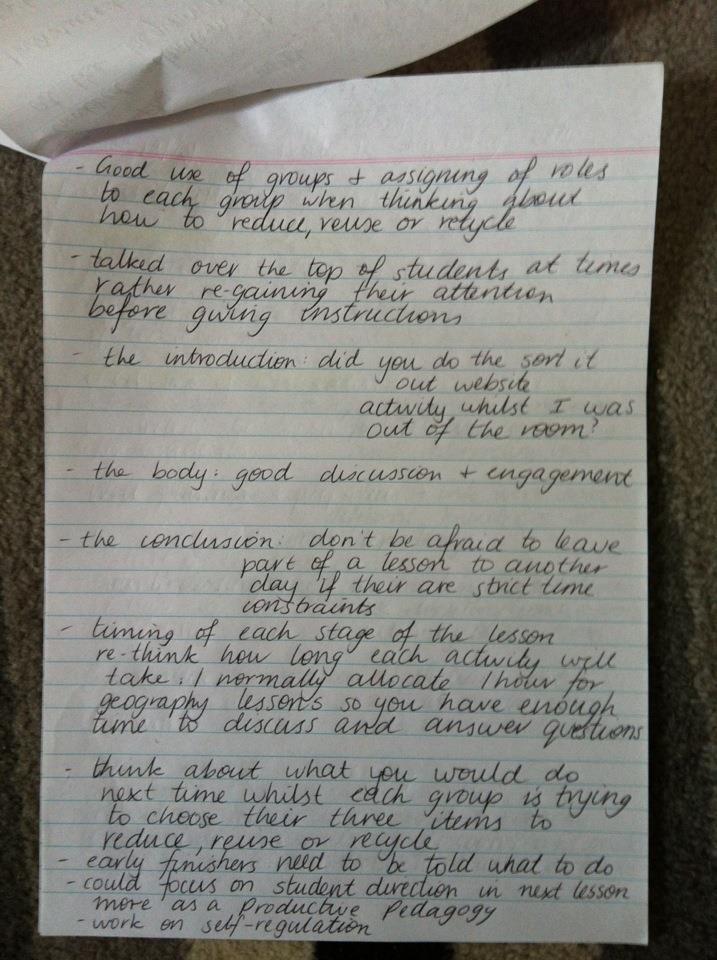 - Good use of groups + assigning of roles
to each group when thinking about
how to reduce, reuse or recycle
- talked over the top of students at times
rather re-gaining their attention
before giving instructions
- the introduction: did you do the sort it
out website
activity whilst I was
out of the room?
- the body: good discussion + engagement
- the conclusion: don't be afraid to leave
part of a lesson to another
day if their are strict time
constraints
- timing of each stage of the lesson
re-think how long each activity will
take. I normally allocate 1 hour for
geography lessons so you have enough
time to discuss and answer questions
- think about what you would do
next time whilst each group is trying
to choose their three items to
reduce, reuse or recycle
- early finishers need to be told what to do
- could focus on student direction in next lesson
more as a Productive Pedagogy
- work on self-regulation